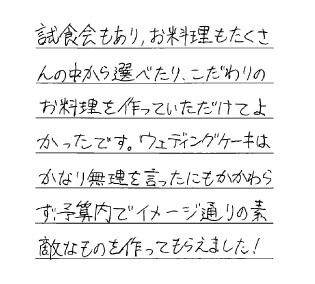 試食会もあり,お料理もたくさ
んの中から選べたり、こだわりの
お料理を作っていただけてよ
かったです。ウェディングケーキは
かなり無理を言ったにもかかわら
ず予算内でイメージ通りの素
敵なものを作ってもらえました!